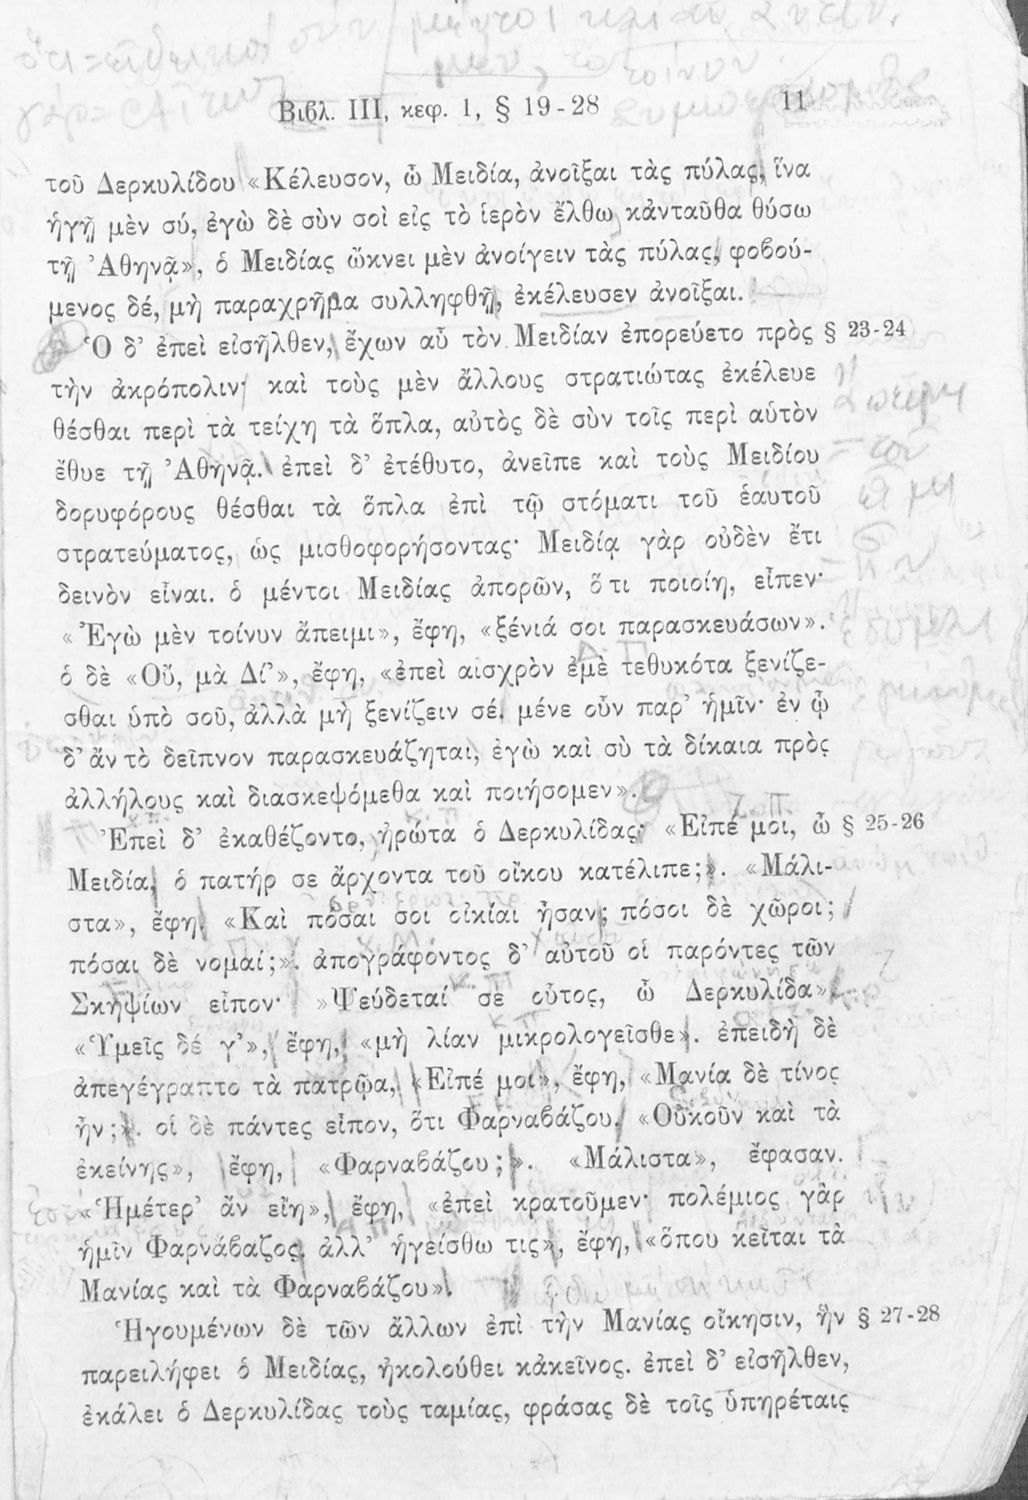 Βιβλ. III, κεφ. 1, § 19-28 11
τοῦ Δερκυλίδου «Κέλευσον, ὦ Μειδία, ἀνοῖξαι τὰς πύλας, ἵνα
ἡγῇ μὲν σύ, ἐγὼ δὲ σὺν σοὶ εἰς τὸ ἱερὸν ἔλθω κἀνταῦθα θύσω
τῇ Ἀθηνᾷ», ὁ Μειδίας ὤκνει μὲν ἀνοίγειν τὰς πύλας, φοβού-
μενος δέ, μὴ παραχρῆμα συλληφθῇ, ἐκέλευσεν ἀνοῖξαι.
Ὁ δ’ ἐπεὶ εἰσῆλθεν, ἔχων αὖ τὸν Μειδίαν ἐπορεύετο πρὸς § 23-24
τὴν ἀκρόπολιν· καὶ τοὺς μὲν ἄλλους στρατιώτας ἐκέλευε
θέσθαι περὶ τὰ τείχη τὰ ὅπλα, αὐτὸς δὲ σὺν τοῖς περὶ αὑτὸν
ἔθυε τῇ Ἀθηνᾷ. ἐπεὶ δ’ ἐτέθυτο, ἀνεῖπε καὶ τοὺς Μειδίου
δορυφόρους θέσθαι τὰ ὅπλα ἐπὶ τῷ στόματι τοῦ ἑαυτοῦ
στρατεύματος, ὡς μισθοφορήσοντας· Μειδίᾳ γὰρ οὐδὲν ἔτι
δεινὸν εἶναι. ὁ μέντοι Μειδίας ἀπορῶν, ὅ τι ποιοίη, εἶπεν·
«Ἐγὼ μὲν τοίνυν ἄπειμι», ἔφη, «ξένιά σοι παρασκευάσων».
ὁ δὲ «Οὔ, μὰ Δί’», ἔφη, «ἐπεὶ αἰσχρὸν ἐμὲ τεθυκότα ξενίζε-
σθαι ὑπὸ σοῦ, ἀλλὰ μὴ ξενίζειν σέ. μένε οὖν παρ’ ἡμῖν· ἐν ᾧ
δ’ ἂν τὸ δεῖπνον παρασκευάζηται, ἐγὼ καὶ σὺ τὰ δίκαια πρὸς
ἀλλήλους καὶ διασκεψόμεθα καὶ ποιήσομεν».
Ἐπεὶ δ’ ἐκαθέζοντο, ἠρώτα ὁ Δερκυλίδας· «Εἰπέ μοι, ὦ § 25-26
Μειδία, ὁ πατήρ σε ἄρχοντα τοῦ οἴκου κατέλιπε;». «Μάλι-
στα», ἔφη. «Καὶ πόσαι σοι οἰκίαι ἦσαν; πόσοι δὲ χῶροι;
πόσαι δὲ νομαί;». ἀπογράφοντος δ’ αὐτοῦ οἱ παρόντες τῶν
Σκηψίων εἶπον· »Ψεύδεταί σε οὗτος, ὦ Δερκυλίδα».
«Ὑμεῖς δέ γ’», ἔφη, «μὴ λίαν μικρολογεῖσθε». ἐπειδὴ δὲ
ἀπεγέγραπτο τὰ πατρῷα, «Εἰπέ μοι», ἔφη, «Μανία δὲ τίνος
ἦν;». οἱ δὲ πάντες εἶπον, ὅτι Φαρναβάζου. «Οὐκοῦν καὶ τὰ
ἐκείνης», ἔφη, «Φαρναβάζου;». «Μάλιστα», ἔφασαν.
«Ἡμέτερ’ ἂν εἴη», ἔφη, «ἐπεὶ κρατοῦμεν· πολέμιος γὰρ
ἡμῖν Φαρνάβαζος. ἀλλ’ ἡγείσθω τις», ἔφη, «ὅπου κεῖται τὰ
Μανίας καὶ τὰ Φαρναβάζου».
Ἡγουμένων δὲ τῶν ἄλλων ἐπὶ τὴν Μανίας οἴκησιν, ἣν § 27-28
παρειλήφει ὁ Μειδίας, ἠκολούθει κἀκεῖνος. ἐπεὶ δ’ εἰσῆλθεν,
ἐκάλει ὁ Δερκυλίδας τοὺς ταμίας, φράσας δὲ τοῖς ὑπηρέταις